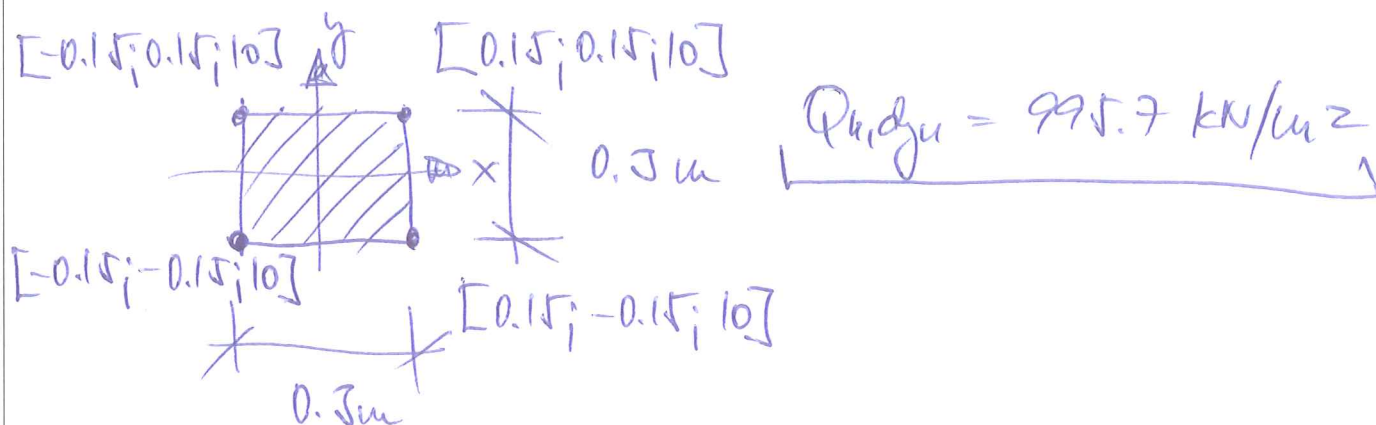 y
[-0.15; 0.15; 10]
[0.15; 0.15; 10]
Qk,dyn = 995.7 kN/m2
x
0.3m
[-0.15; -0.15; 10]
[0.15; -0.15; 10]
0.3m